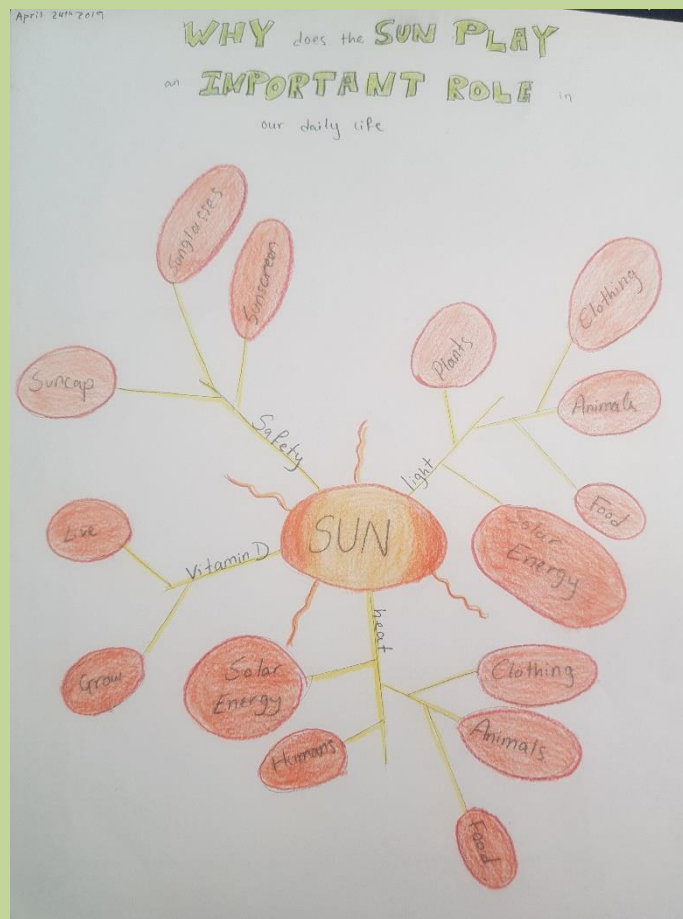 April 24th 2019
WHY does the SUN PLAY
an IMPORTANT ROLE in
our daily life
Sunglasses
Sunscreen
Suncap
Safety
Plants
Clothing
Animals
Food
light
Solar
Energy
SUN
Live
Vitamin D
Grow
heat
Solar
Energy
Humans
Clothing
Animals
Food